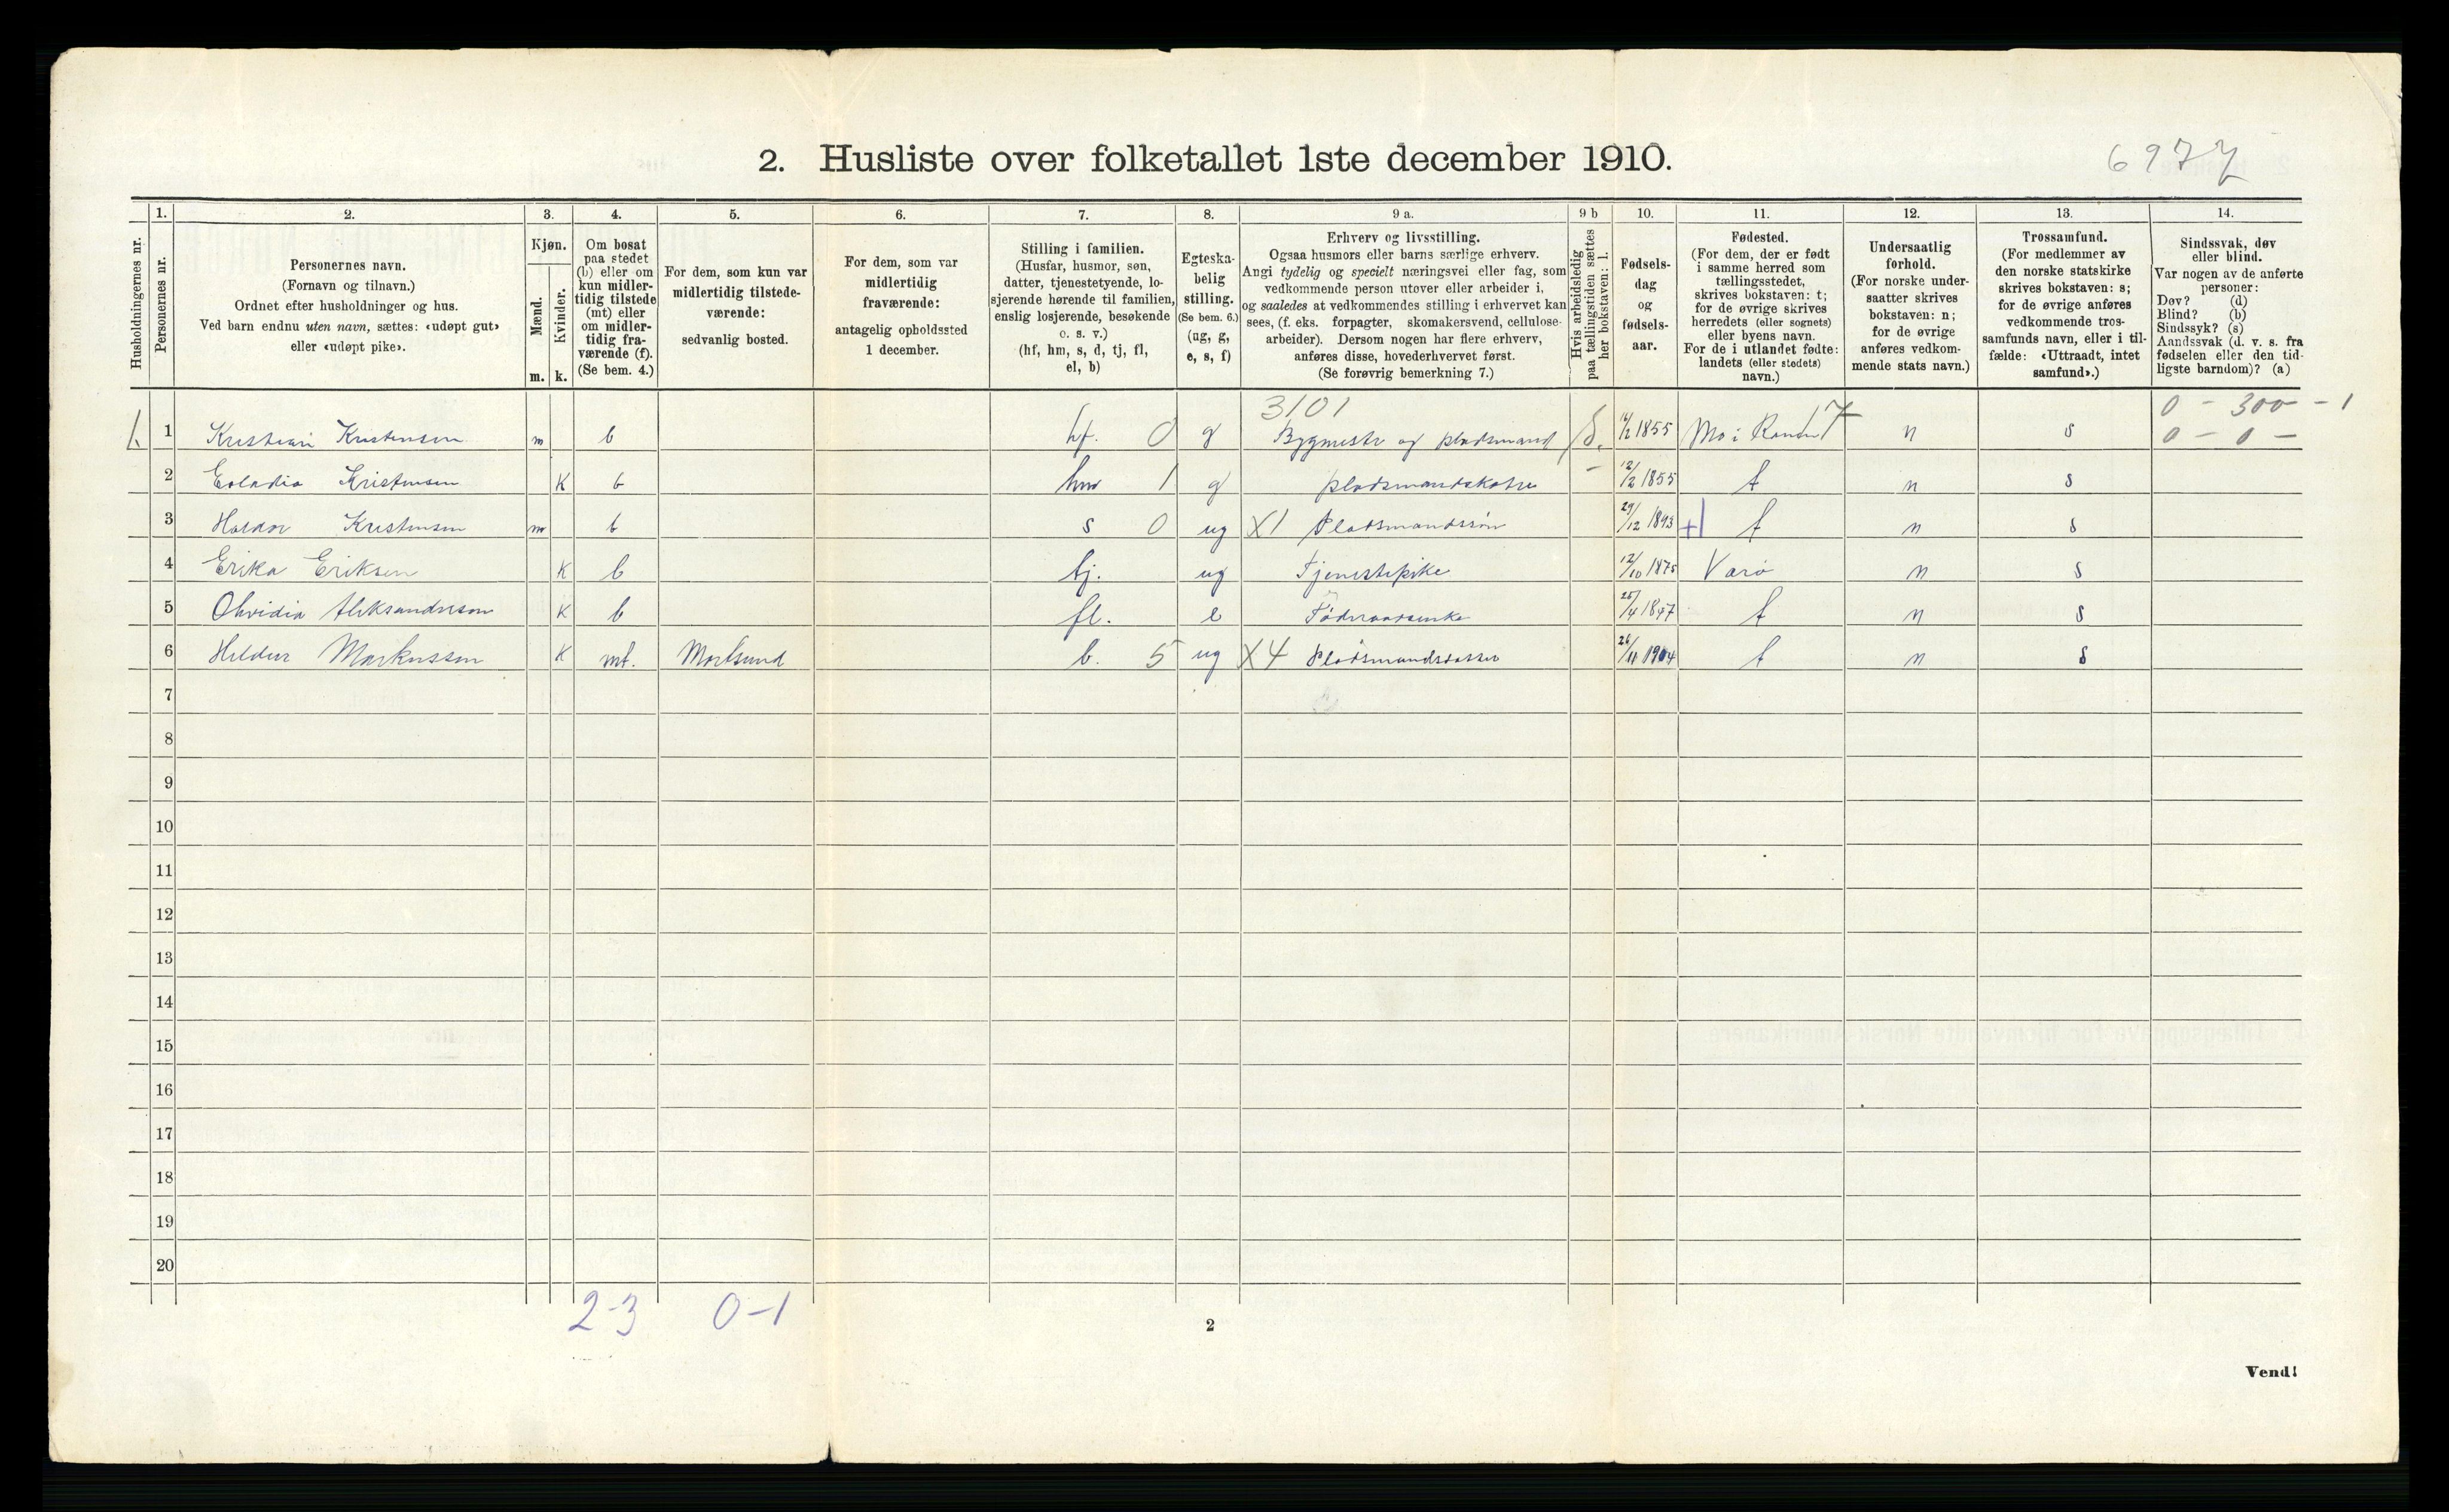 2. Husliste over folketallet 1ste december 1910.
6977
Husholdningernes nr.
1.
Personernes nr.
2.
Personernes navn.
(Fornavn og tilnavn.)
Ordnet efter husholdninger og hus.
Ved barn endnu uten navn, sættes: «udøpt gut»
eller «udøpt pike».
3.
Kjøn.
Mænd.
Kvinder.
m. k.
4.
Om bosat
paa stedet
(b) eller om
kun midler-
tidig tilstede
(mt) eller
om midler-
tidig fra-
værende (f).
(Se bem. 4.)
5.
For dem, som kun var
midlertidig tilstede-
værende:
sedvanlig bosted.
6.
For dem, som var
midlertidig
fraværende:
antagelig opholdssted
1 december.
7.
Stilling i familien.
(Husfar, husmor, søn,
datter, tjenestetyende, lo-
sjerende hørende til familien,
enslig losjerende, besøkende
o. s. v.)
(hf, hm, s, d, tj, fl,
el, b)
8.
Egteska-
belig
stilling.
(Se bem. 6.)
(ug, g,
e, s, f)
9 a.
Erhverv og livsstilling.
Ogsaa husmors eller barns særlige erhverv.
Angi tydelig og specielt næringsvei eller fag, som
vedkommende person utøver eller arbeider i,
og saaledes at vedkommendes stilling i erhvervet kan
sees, (f. eks. forpagter, skomakersvend, cellulose-
arbeider). Dersom nogen har flere erhverv,
anføres disse, hovederhvervet først.
(Se forøvrig bemerkning 7.)
9 b
Hvis arbeidsledig
paa tællingstiden sættes
her bokstaven: l.
10.
Fødsels-
dag
og
fødsels-
aar.
11.
Fødested.
(For dem, der er født
i samme herred som
tællingsstedet,
skrives bokstaven: t;
for de øvrige skrives
herredets (eller sognets)
eller byens navn.
For de i utlandet fødte:
landets (eller stedets)
navn.)
12.
Undersaatlig
forhold.
(For norske under-
saatter skrives
bokstaven: n;
for de øvrige
anføres vedkom-
mende stats navn.)
13.
Trossamfund.
(For medlemmer av
den norske statskirke
skrives bokstaven: s;
for de øvrige anføres
vedkommende tros-
samfunds navn, eller i til-
fælde: «Uttraadt, intet
samfund».)
14.
Sindssvak, døv
eller blind.
Var nogen av de anførte
personer:
Døv? (d)
Blind? (b)
Sindssyk? (s)
Aandssvak (d. v. s. fra
fødselen eller den tid-
ligste barndom)? (a)
3101 0 - 300 - 1
1 Kristian Kristensen m b hf. 0 g Bygmestr og pladsmand 1855 Mo i Ranen 7 n s 0 - 0 -
2 Kristensen K b hm 1 g pladsmandskone 12/2 1855 t n s
3 Haldor Kristensen m b s 0 ug X1 Pladsmandssøn 29/12 1893 +1 t n s
4 Erika Eriksen K b tj. ug Tjenestepike 12/10 1875 Værø n s
5 Aleksandersen K b fl. e Føderaadsenke t n s
6 Hildur Markussen K mt. Mortsund b. 5 ug X4 Pladsmandsdatter 26/11 1904 t n s
7
8
9
10
11
12
13
14
15
16
17
18
19
20
2-3 0-1
2
Vend!